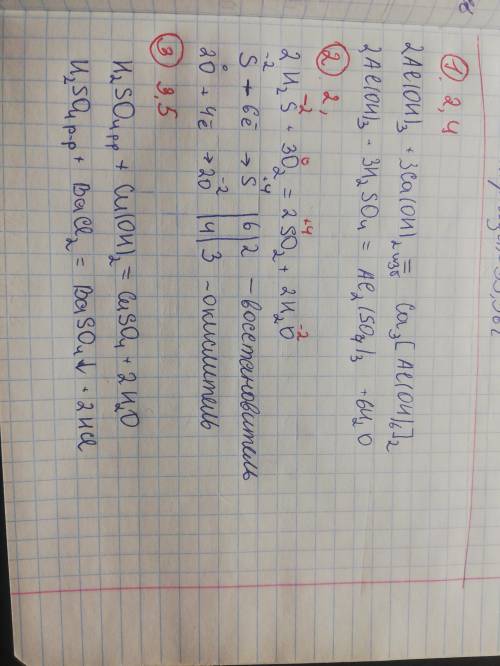 1. 2,4
2Al(OH)3 + 3Ca(OH)2 изб = Ca3[Al(OH)6]2
2Al(OH)3 + 3H2SO4 = Al2(SO4)3 + 6H2O
2. 2,
2H2S + 3O2 = 2SO2 + 2H2O
-2 0 +4 -2
S + 6ē → S | 6 | 2 - восстановитель
-2 +4
2O + 4ē → 2O | 4 | 3 - окислитель
0 -2
3. 3,5
H2SO4 р-р + Cu(OH)2 = CuSO4 + 2H2O
H2SO4 р-р + BaCl2 = BaSO4↓ + 2HCl